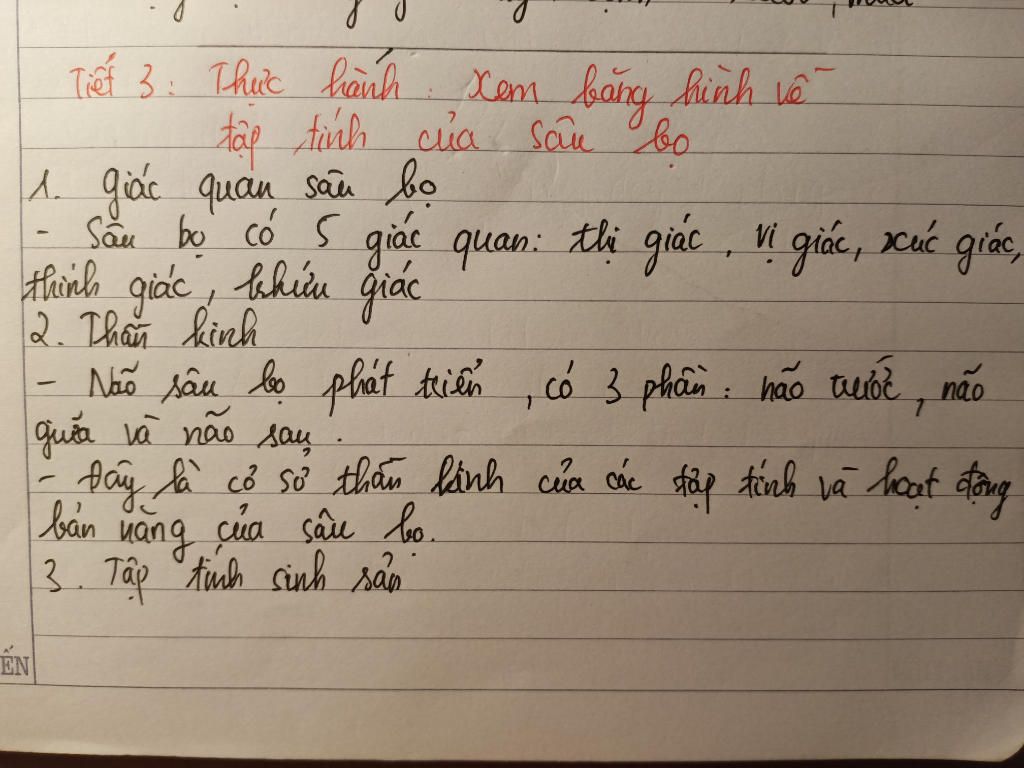 Tiết 3: Thực hành: Xem băng hình về
tập tính của sâu bọ
1. Giác quan sâu bọ
- Sâu bọ có 5 giác quan: thị giác, vị giác, xúc giác,
thính giác, khứu giác
2. Thần kinh
- Não sâu bọ phát triển, có 3 phần: não trước, não
giữa và não sau.
- Đây là cơ sở thần kinh của các tập tính và hoạt động
bản năng của sâu bọ.
3. Tập tính sinh sản
ẾN